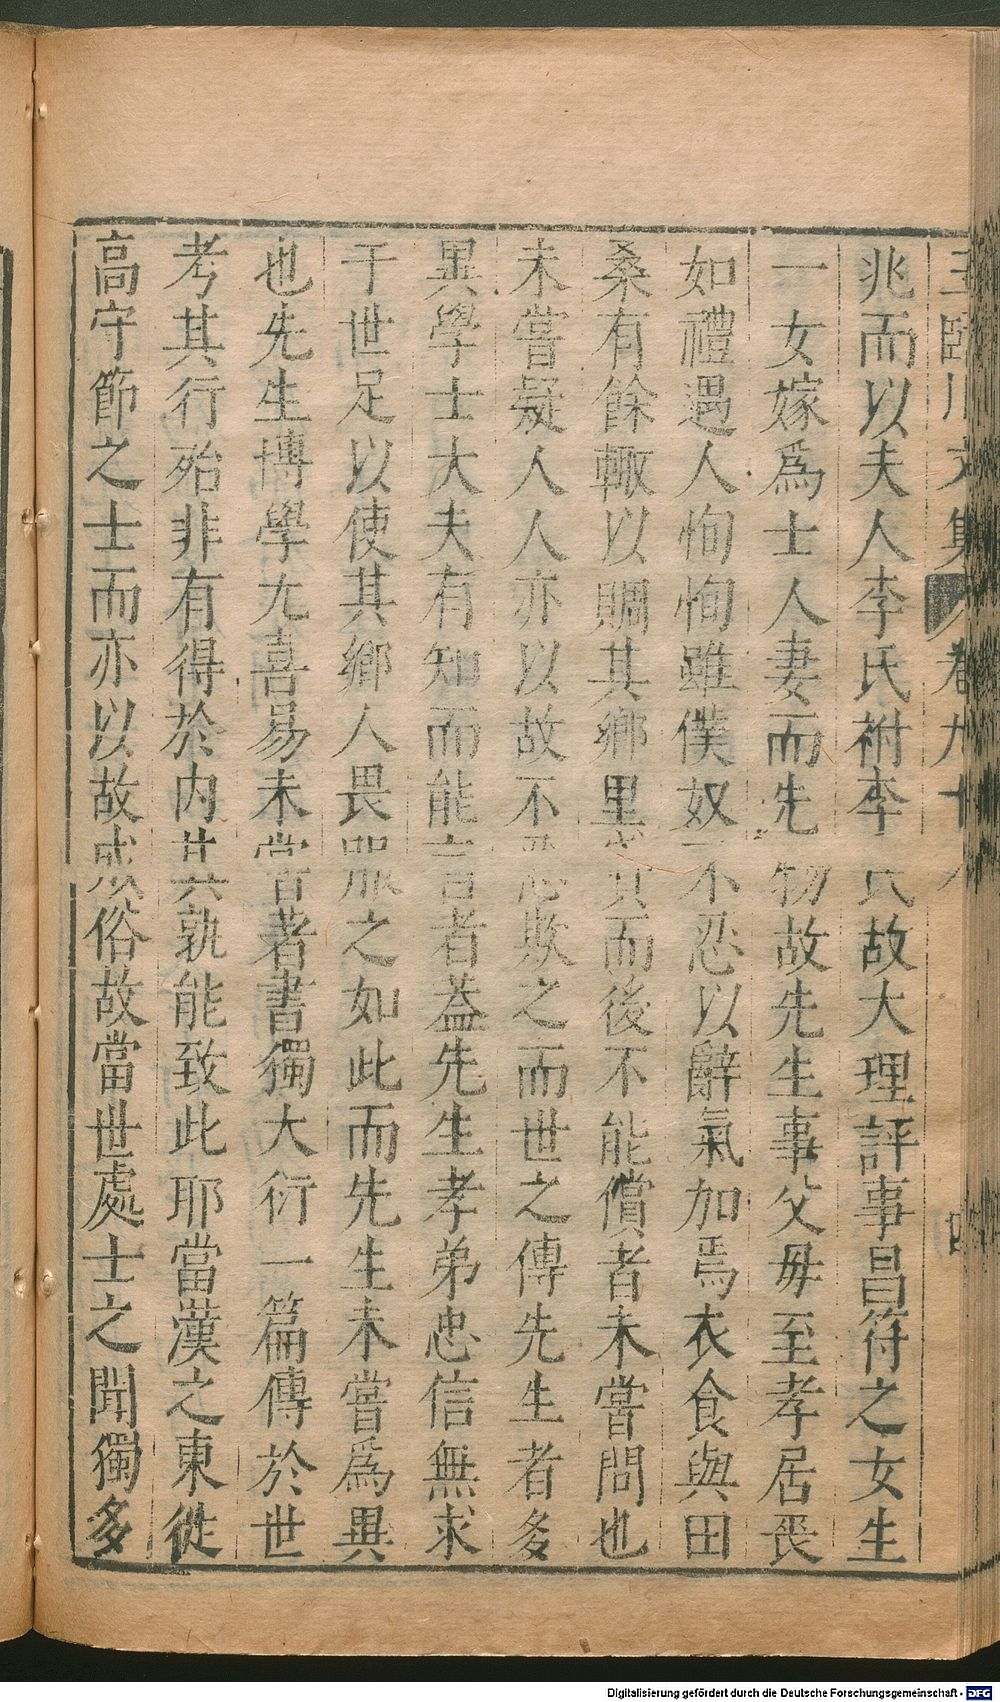 王臨川文集 卷九十八 四
兆而以夫人李氏祔李氏故大理評事昌符之女生
一女嫁爲士人妻而先物故先生事父毋至孝居喪
如禮遇人恂恂雖僕奴不忍以辭氣加焉衣食與田
桑有餘輙以賙其鄉里貧而後不能償者未嘗問也
未嘗疑人人亦以故不忍欺之而世之傳先生者多
異學士大夫有知而能言者葢先生孝弟忠信無求
于世足以使其鄉人畏服之如此而先生未嘗爲異
也先生博學尤喜易未嘗著書獨大衍一篇傳於世
考其行殆非有得於内其孰能致此耶當漢之東徙
高守節之士而亦以故成俗故當世處士之聞獨多
Digitalisierung gefördert durch die Deutsche Forschungsgemeinschaft - DFG